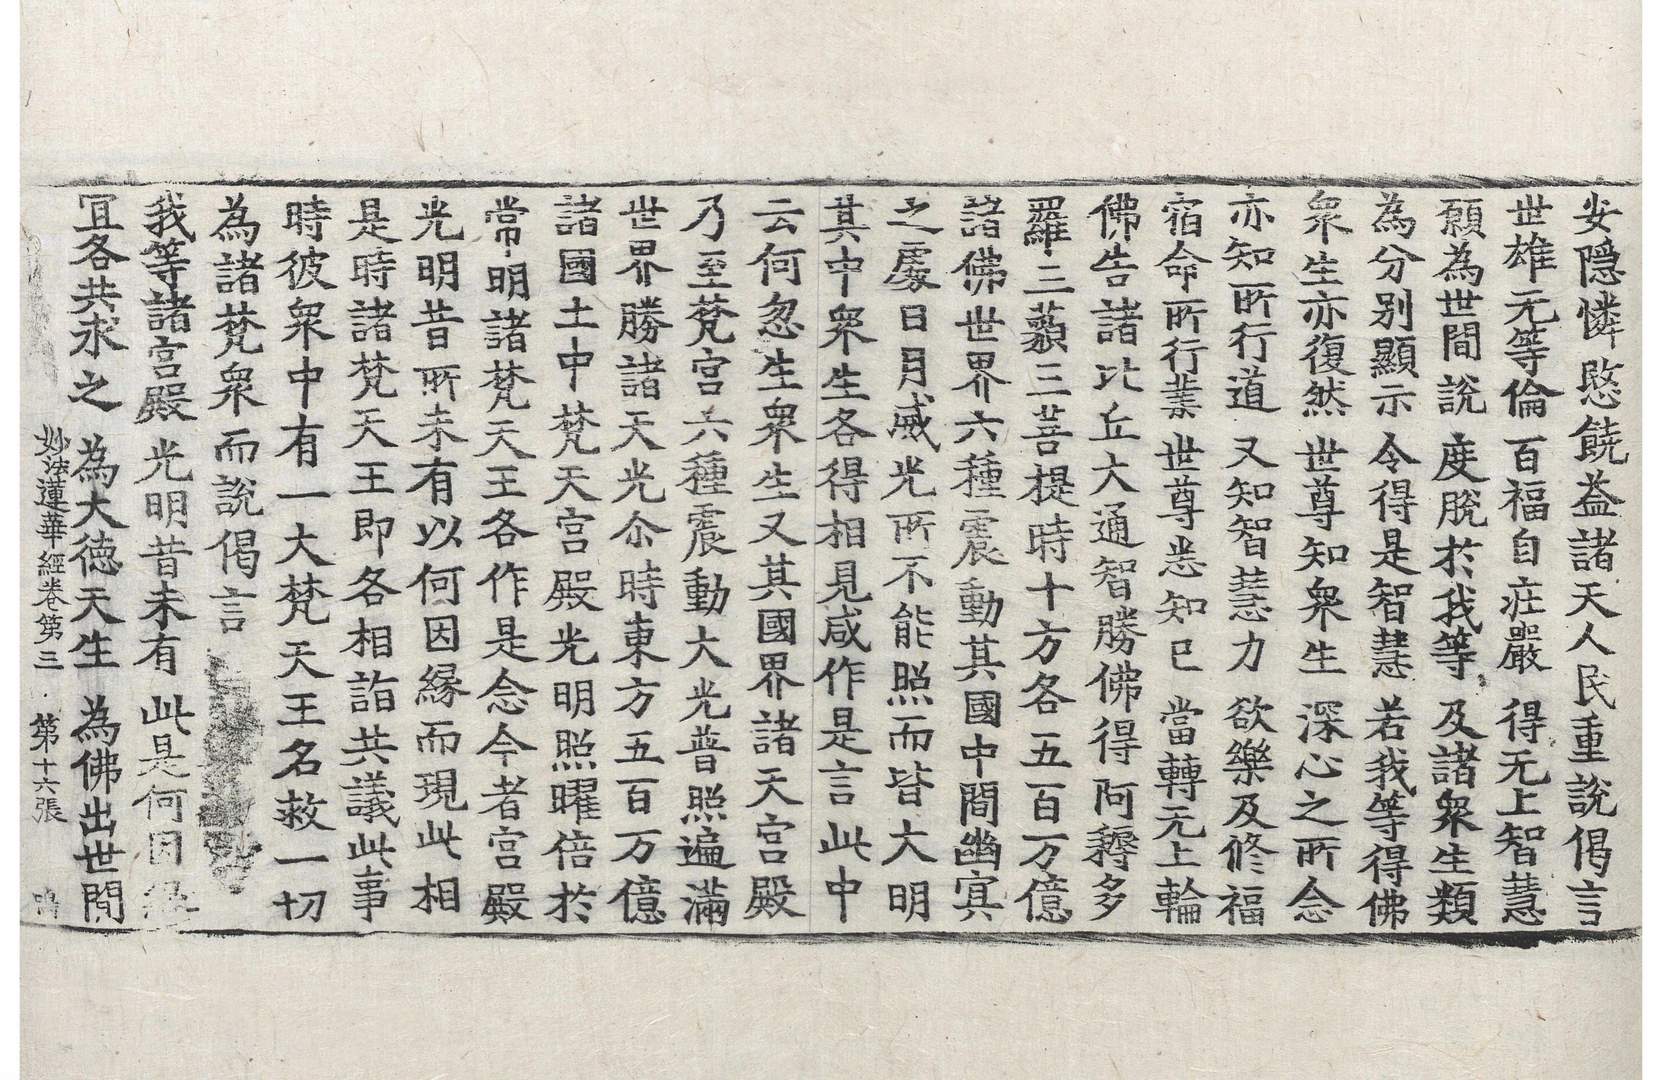 安隱憐愍饒益諸天人民重說偈言
世雄无等倫 百福自庄嚴 得无上智慧
願為世間說 度脫於我等 及諸衆生類
為分別顯示 令得是智慧 若我等得佛
衆生亦復然 世尊知衆生 深心之所念
亦知所行道 又知智慧力 欲樂及修福
宿命所行業 世尊悉知已 當轉无上輪
佛告諸比丘大通智勝佛得阿耨多
羅三藐三菩提時十方各五百万億
諸佛世界六種震動其國中間幽冥
之處日月威光所不能照而皆大明
其中衆生各得相見咸作是言此中
云何忽生衆生又其國界諸天宮殿
乃至梵宮六種震動大光普照遍滿
世界勝諸天光尒時東方五百万億
諸國土中梵天宮殿光明照曜倍於
常明諸梵天王各作是念今者宮殿
光明昔所未有以何因緣而現此相
是時諸梵天王即各相詣共議此事
時彼衆中有一大梵天王名救一切
為諸梵衆而說偈言
我等諸宮殿 光明昔未有 此是何因緣
冝各共求之 為大德天生 為佛出世間
妙法蓮華經卷第三 第十六張